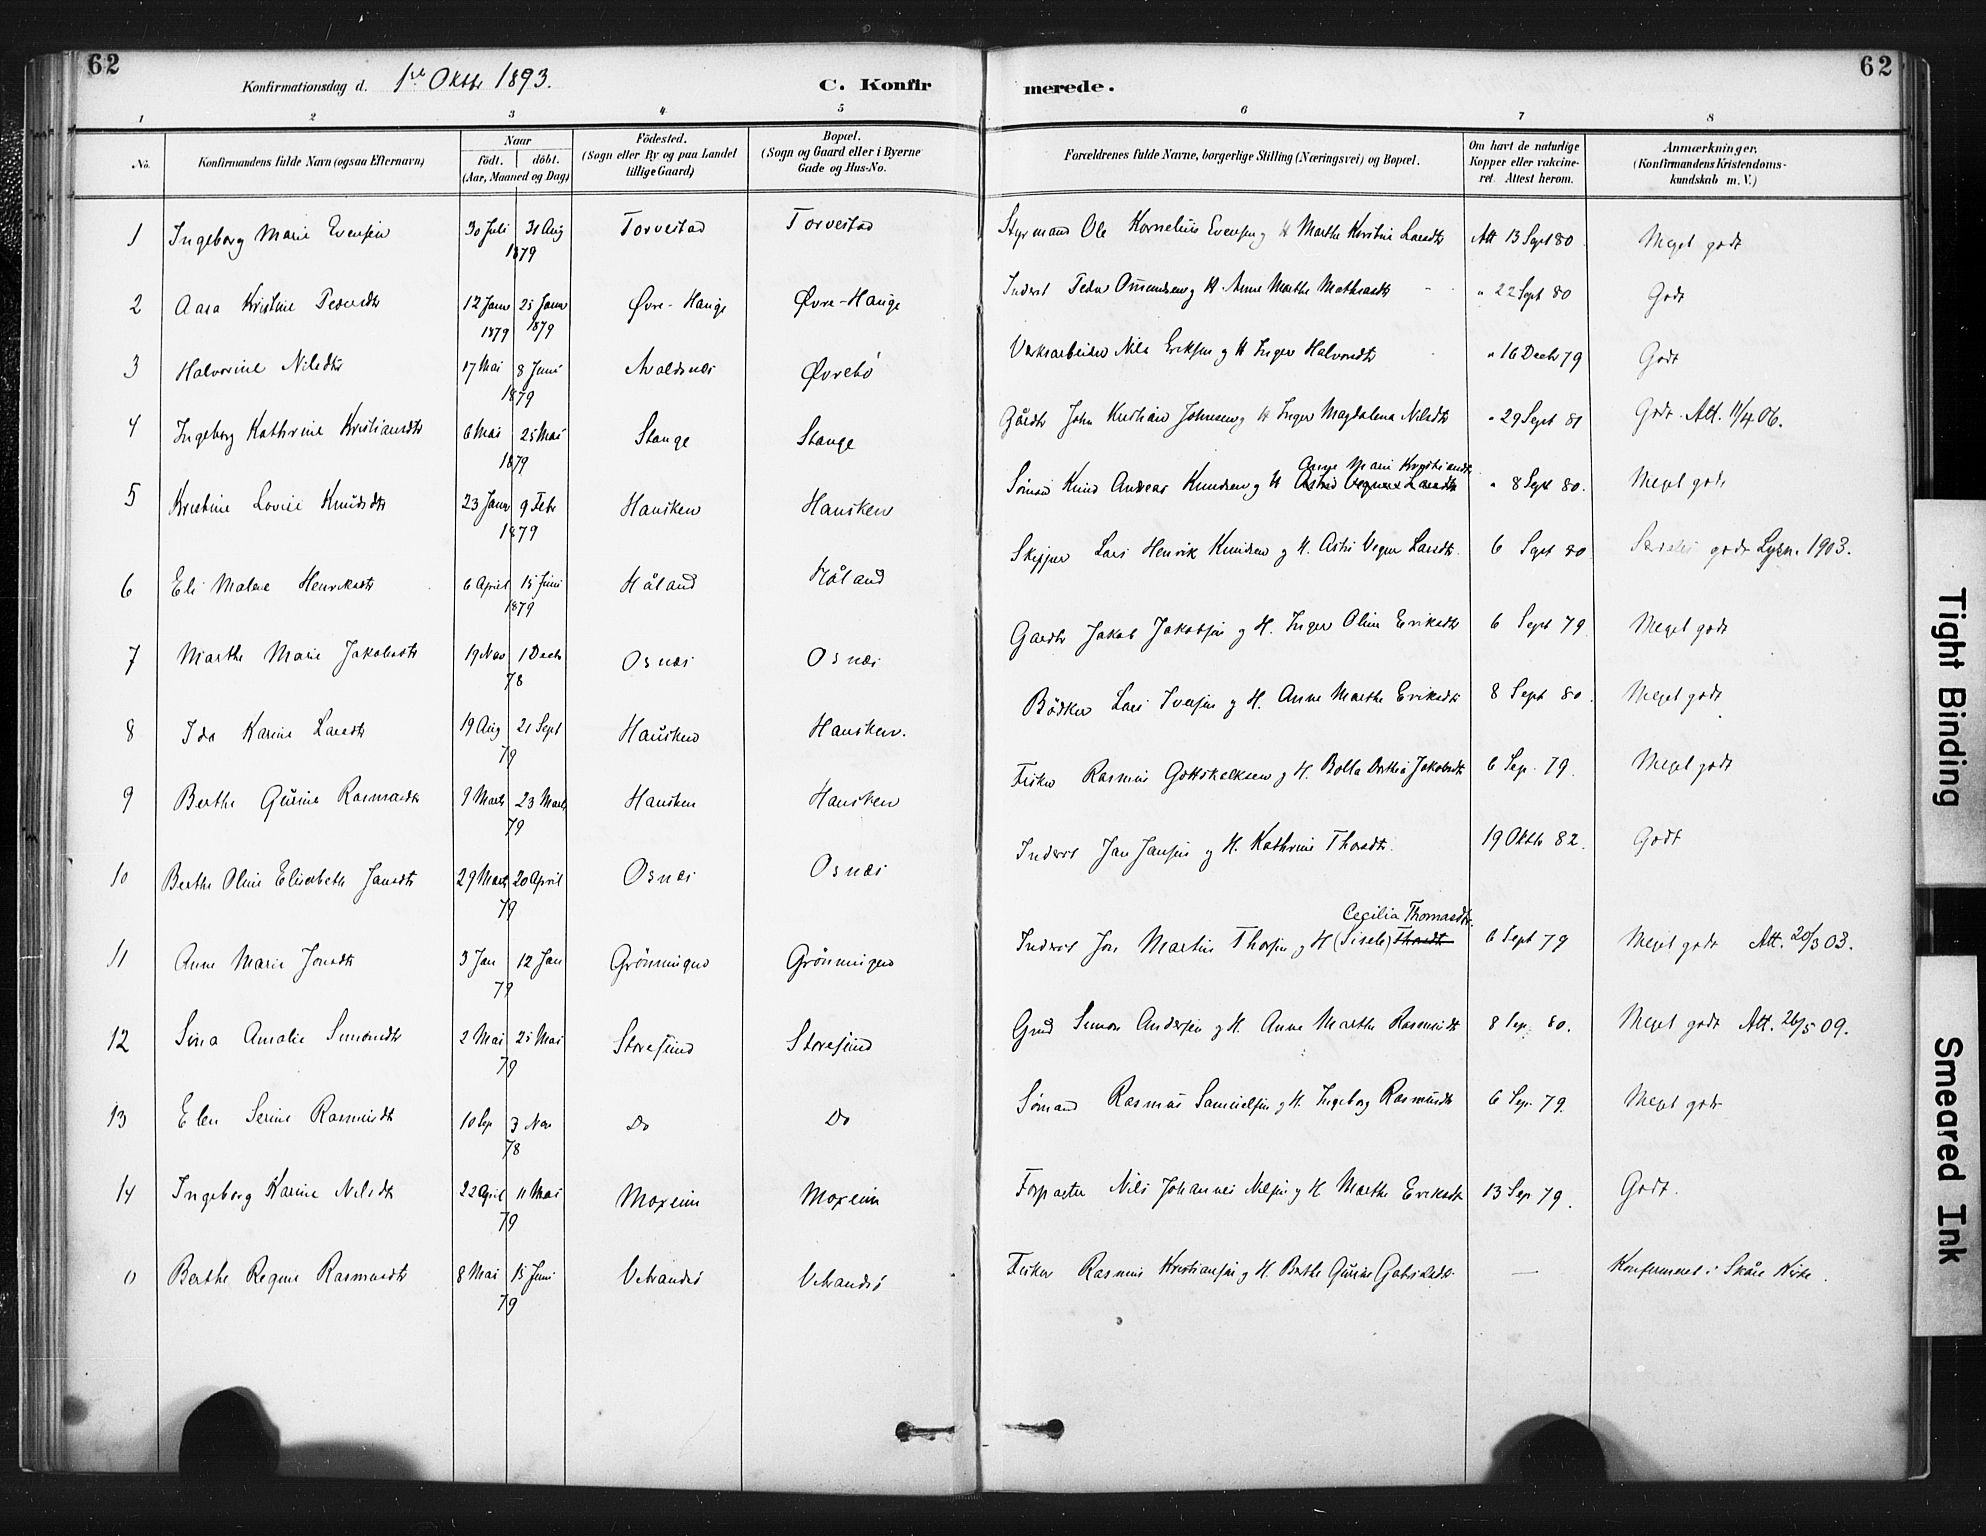 62
62
Konfirmationsdag d. 1ste Oktbr 1893.
C. Konfirmerede.
1 2 3 4 5 6 7 8
No.
Konfirmandens fulde Navn (ogsaa Efternavn)
Naar
födt. döbt.
(Aar, Maaned og Dag)
Födested.
(Sogn eller By og paa Landet
tillige Gaard)
Bopæl.
(Sogn og Gaard eller i Byerne
Gade og Hus-No.
Forældrenes fulde Navne, borgerlige Stilling (Næringsvei) og Bopæl.
Om havt de naturlige
Kopper eller vakcine-
ret. Attest herom.
Anmærkninger.
(Konfirmandens Kristendoms-
kundskab m. V.)
1 Ingeborg Marie Evensen 30 Juli 31 Aug 1879 Torvestad Torvestad Styrmand Ole Kornelius Evensen og H Marthe Kristine Larsdtr Att 13 Sept 80. Meget godt
2 Aasa Kristine Pedersdtr 12 Janr 1879 25 Janr 1879 Øvre-Hauge Øvre-Hauge Inderst Peder og H. Anne Marthe " 22 Sept 80 Godt
3 Halvorine Nilsdtr 17 Mai 8 Juni 1879 Avaldsnes Øvrebö Værksarbeider Nils Eriksen og H Inger Halvorsdtr " 16 Decbr 79 Godt
4 Ingeborg Kathrine Kristiansdtr 6 Mai 25 Mai 1879 Stange Stange Gårdbr John Kristian Johnsen og H Inger Magdalena Nilsdtr " 29 Sept 81 Godt. Att. 11/4 06.
5 Kristine Lovise Knudsdtr 23 Janr 9 Febr 1879 Hausken Hausken Sömand Knud Andreas Knudsen og H Anne Marie Kristiansdtr " 8 Sept 80. Meget godt
6 Eli Malene Henriksdtr 6 April 15 Juni 1879 Håland Håland Skipper Lars Henrik Knudsen og H. Larsdtr. 6 Sept 80 godt Lysn. 1903.
7 Marthe Marie Jakobsdtr 19 Nov 1 Decbr 78 Osnes Osnes Gaardbr Jakob Jakobsen og H. Inger Oline Eriksdtr 6 Sept 79 Meget godt
8 Ida Karine Larsdtr 19 Aug 21 Sept 79 Hausken Hausken. Bödker Lars Iversen og H. Anne Marthe Eriksdtr 8 Sept 80. Meget godt
9 Berthe Gurine Rasmusdtr 9 Marts 23 Marts 79 Hausken Hausken Fisker Rasmus Gottskalksen og H. Bolla Jakobsdtr 6 Sep. 79. Meget godt
10 Berthe Oline Elisabeth Jansdtr 29 Marts 20 April 79 Osnes Osnes Inderst Jan Jansen og H. Kathrine Thorsdtr. 19 Oktbr 82. Godt
11 Anne Marie Jonsdtr 3 Jan 12 Jan 79 Grönningen Grönningen Inderst Jon Martin Thorsen og H (Sisele) Thorsdtr Cecilia Thomasdtr. 6 Sept 79 Meget godt Att. 20/3 03.
12 Sina Amalie Simonsdtr 2 Mai 25 Mai 79 Storesund Storesund Simon Andersen og H. Anne Marthe Rasmusdtr 8 Sep. 80. Meget godt Att. 26/5 09.
13 Elen Serine Rasmusdtr 10 Sep 3 Nov 78 Do Do Sömand Rasmus Samuelsen og H. Ingeborg Rasmusdtr 6 Sep. 79. Meget godt
14 Ingeborg Karine Nilsdtr 22 April 11 Mai 79 Moxeim Moxeim Forpagter Nils Johannes Nilsen og H Marthe Eriksdtr 13 Sep 79. Godt.
0 Berthe Regine Rasmusdtr 8 Mai 15 Juni 79 Vibrandsö Vibrandsö Fisker Rasmus Kristiansen og H. Berthe Gurine Gabrielsdtr — Konfirmeret i Skåre Kirke.
Tight Binding
Smeared Ink